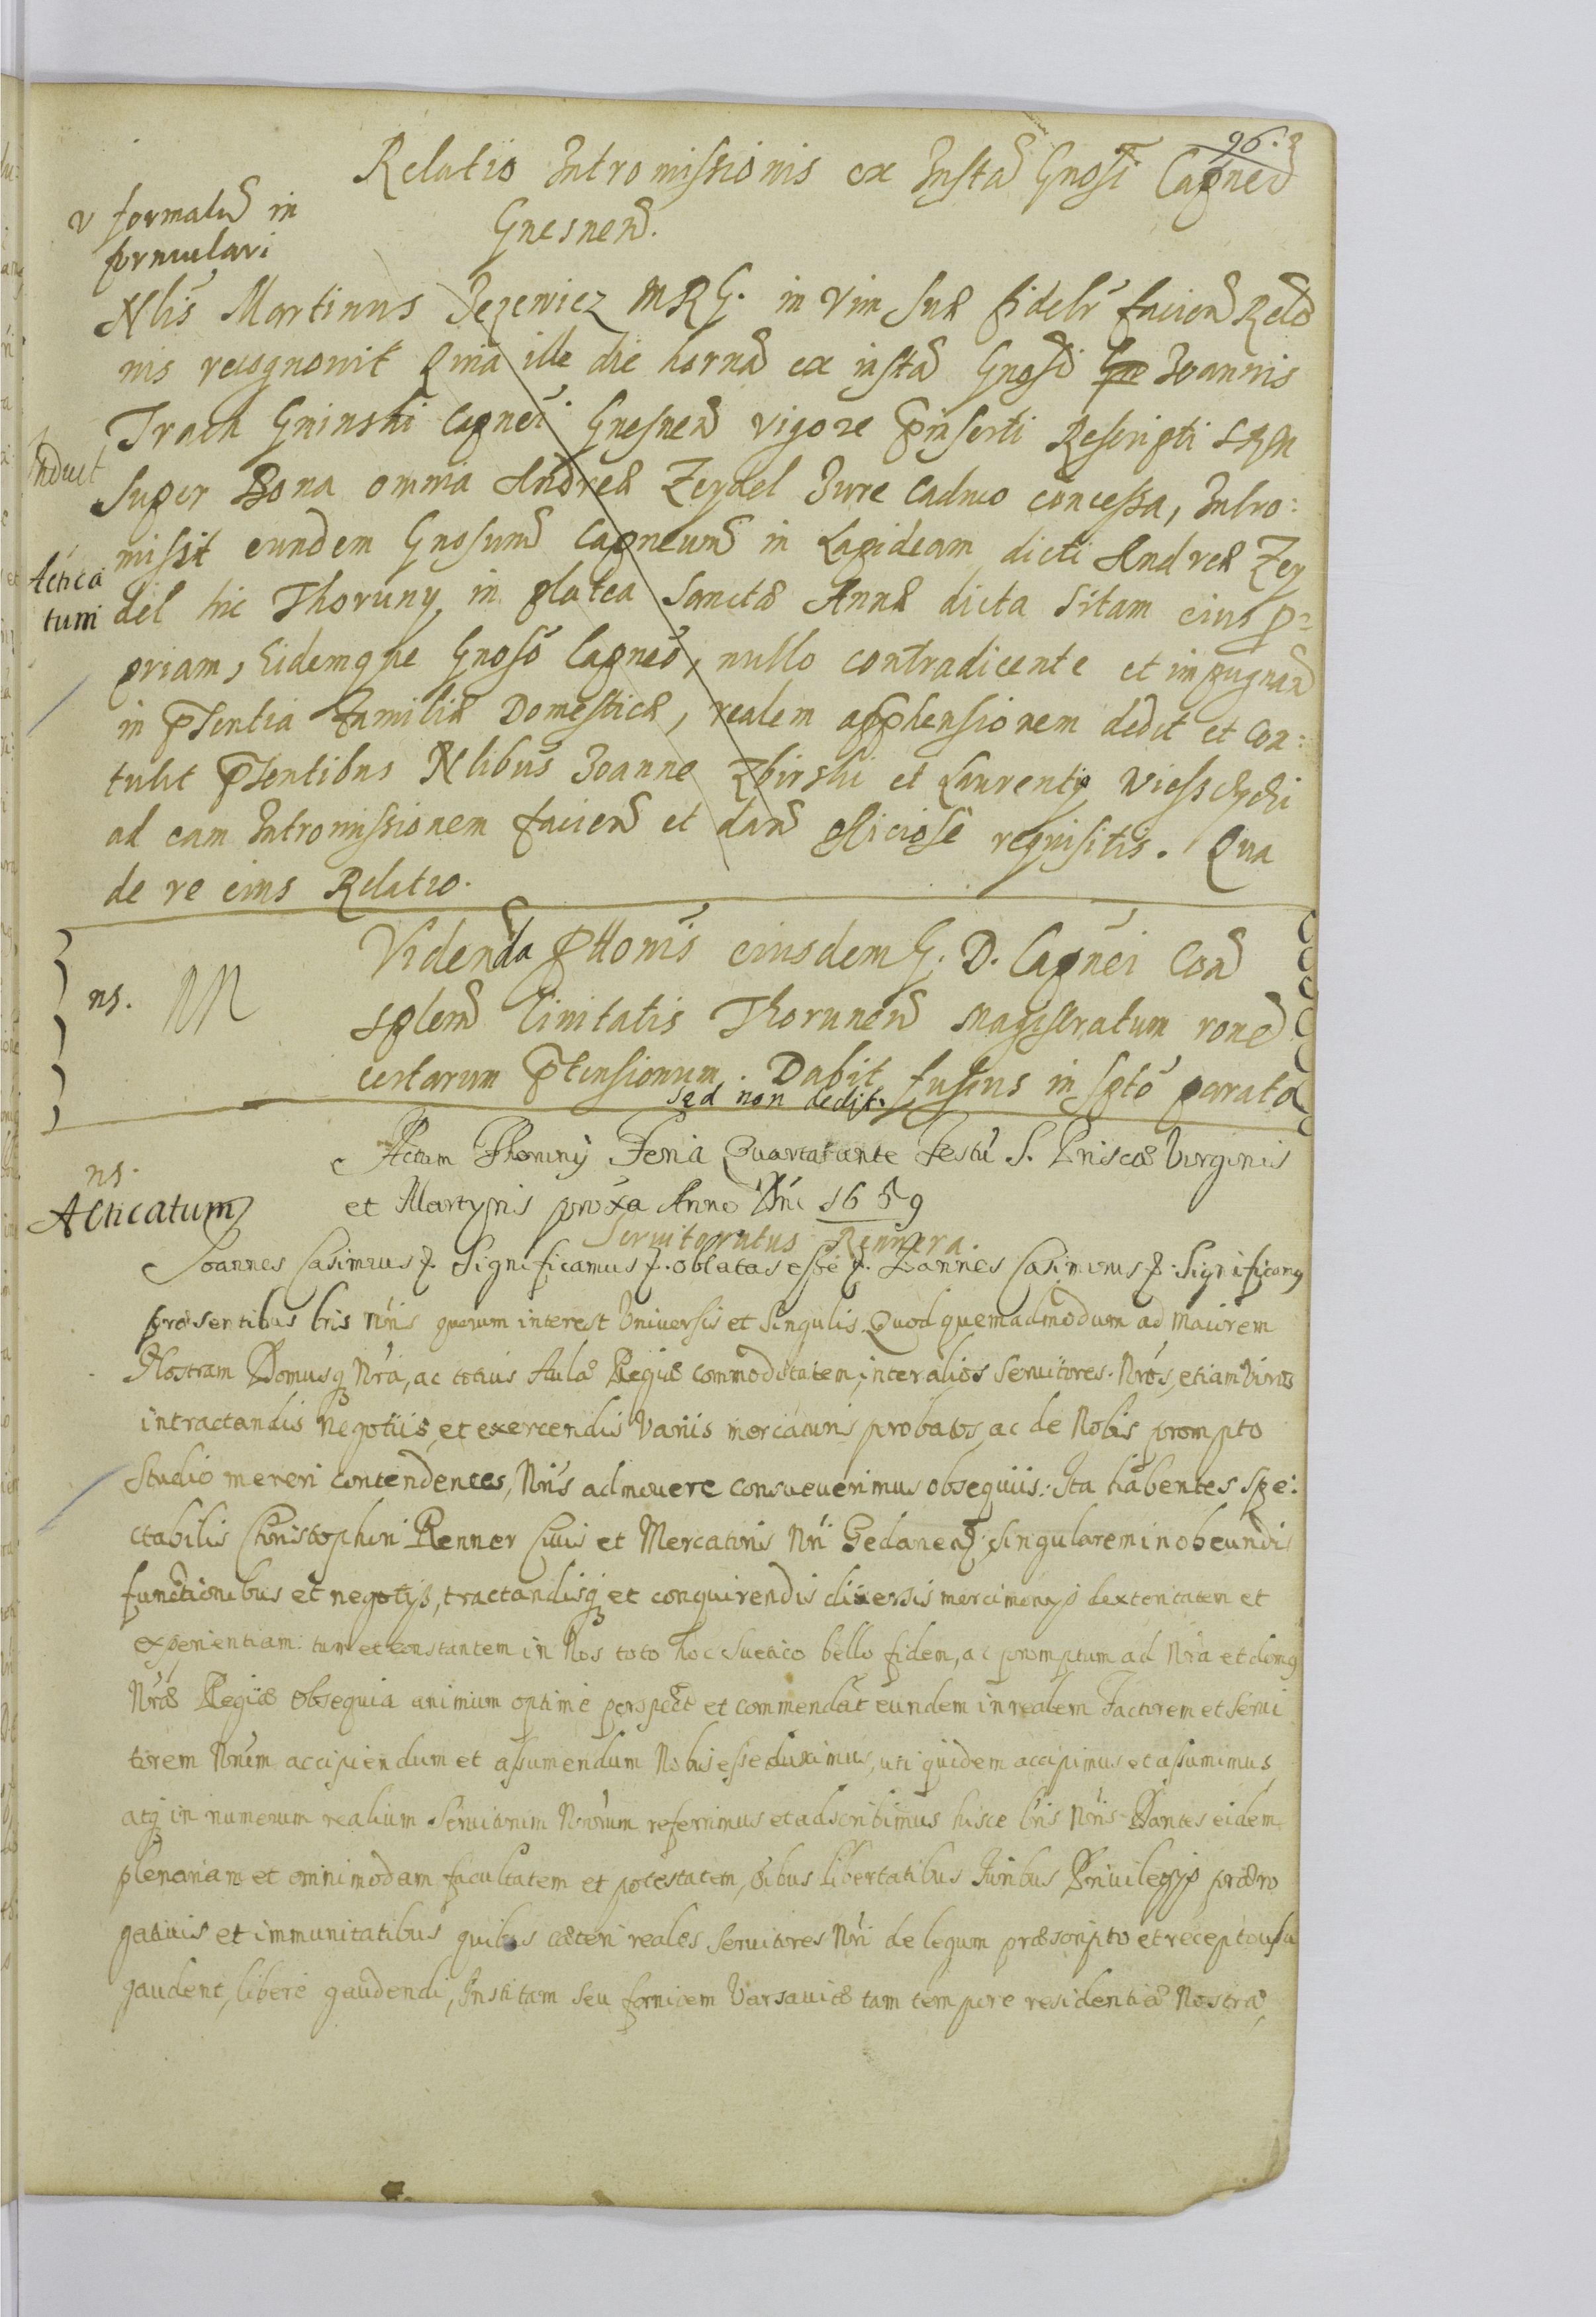 96.
Relatio Intromissionis ex Insta Gnosi Capnei
Gnesnen.
v formalu in
formulari
Nlis Martinus Jezewicz MRG. in vim suæ fidelr facien Relo
nis recognovit Quia ille die horna ex insta Gnosi Joannis
Trach Gninski Capnei Gnesnen vigore pinserti Rescripti SRM
Induct
super Bona omnia Andreæ Zeydel Jure Caduco concessa, Intro:
missit eundem Gnosum Capneum in Lapideam dicti Andreæ Zey
Actica
tum
del hic Thoruny in platea Sanctæ Annæ dicta sitam eius p=
priam, Eidemque Gnoso Capneo, nullo contradicente et inpugnan
in psentia Familiæ Domesticæ, realem apphensionem dedit et con:
tulit psentibus Nlibus Joanne Zbirski et Laurentio
ad eam Intromissionem facien et dan officiose requisitis. Qua
de re eius Relatio.
ns. M
Videnda pttonis eiusdem G. D. Capnei Con
splem Civitatis Thorunen Magistratum rone
certarum ptensionum. Dabit fusius in spto parata
sed non dedit.
Actum Thoruny Feria Quarta ante Festu S. Priscæ Virginis
et Martyris proxa Anno Dni 1659
ns.
Acticatum
Servitoratus Rennera.
Joannes Casimirus &. Significamus &. oblatas esse &. Joannes Casimirus &. Significamg
præsentibus lris nris quorum interest Universis et Singulis Quod quemadmodum ad maiorem
Nostram Domusq Nra, ac totius Aulæ Regiæ commoditatem, inter alios Servitores Nros, etiam viros
in tractandis negotiis, et exercendis variis mercaturis probatos, ac de Nobis prompto
studio mereri contendentes, Nris admovere consueverimus obsequiis: Ita habentes spe:
ctabilis Christophori Renner Civis et Mercatoris Nri Gedanen singularem in obeundis
functionibus et negotijs, tractandisq et conquirendis diversis mercimonijs dexteritatem et
experientiam: tum et constantem in Nos toto hoc Suetico bello fidem, ac promptum ad Nra et domg
Nræ Regiæ obsequia animum optime perspect et commendat eundem in realem Factorem et Servi
torem Nrum accipiendum et assumendum Nobis esse duximus, uti quidem accipimus et assumimus
atq in numerum realium Servitorum Nrorum referrimus et adscribimus hisce lris Nris Dantes eidem
plenariam et omnimodam facultatem et potestatem, oibus libertatibus Iuribus Privilegijs præro
gativis et immunitatibus quibus cæteri reales Servitores Nri de legum præscripto et recepto usu
gaudent, libere gaudendi, Institam seu fornicem Varsaviæ tam tempore residentiæ Nostræ